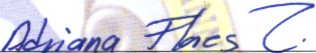 Adriana Flores Z.